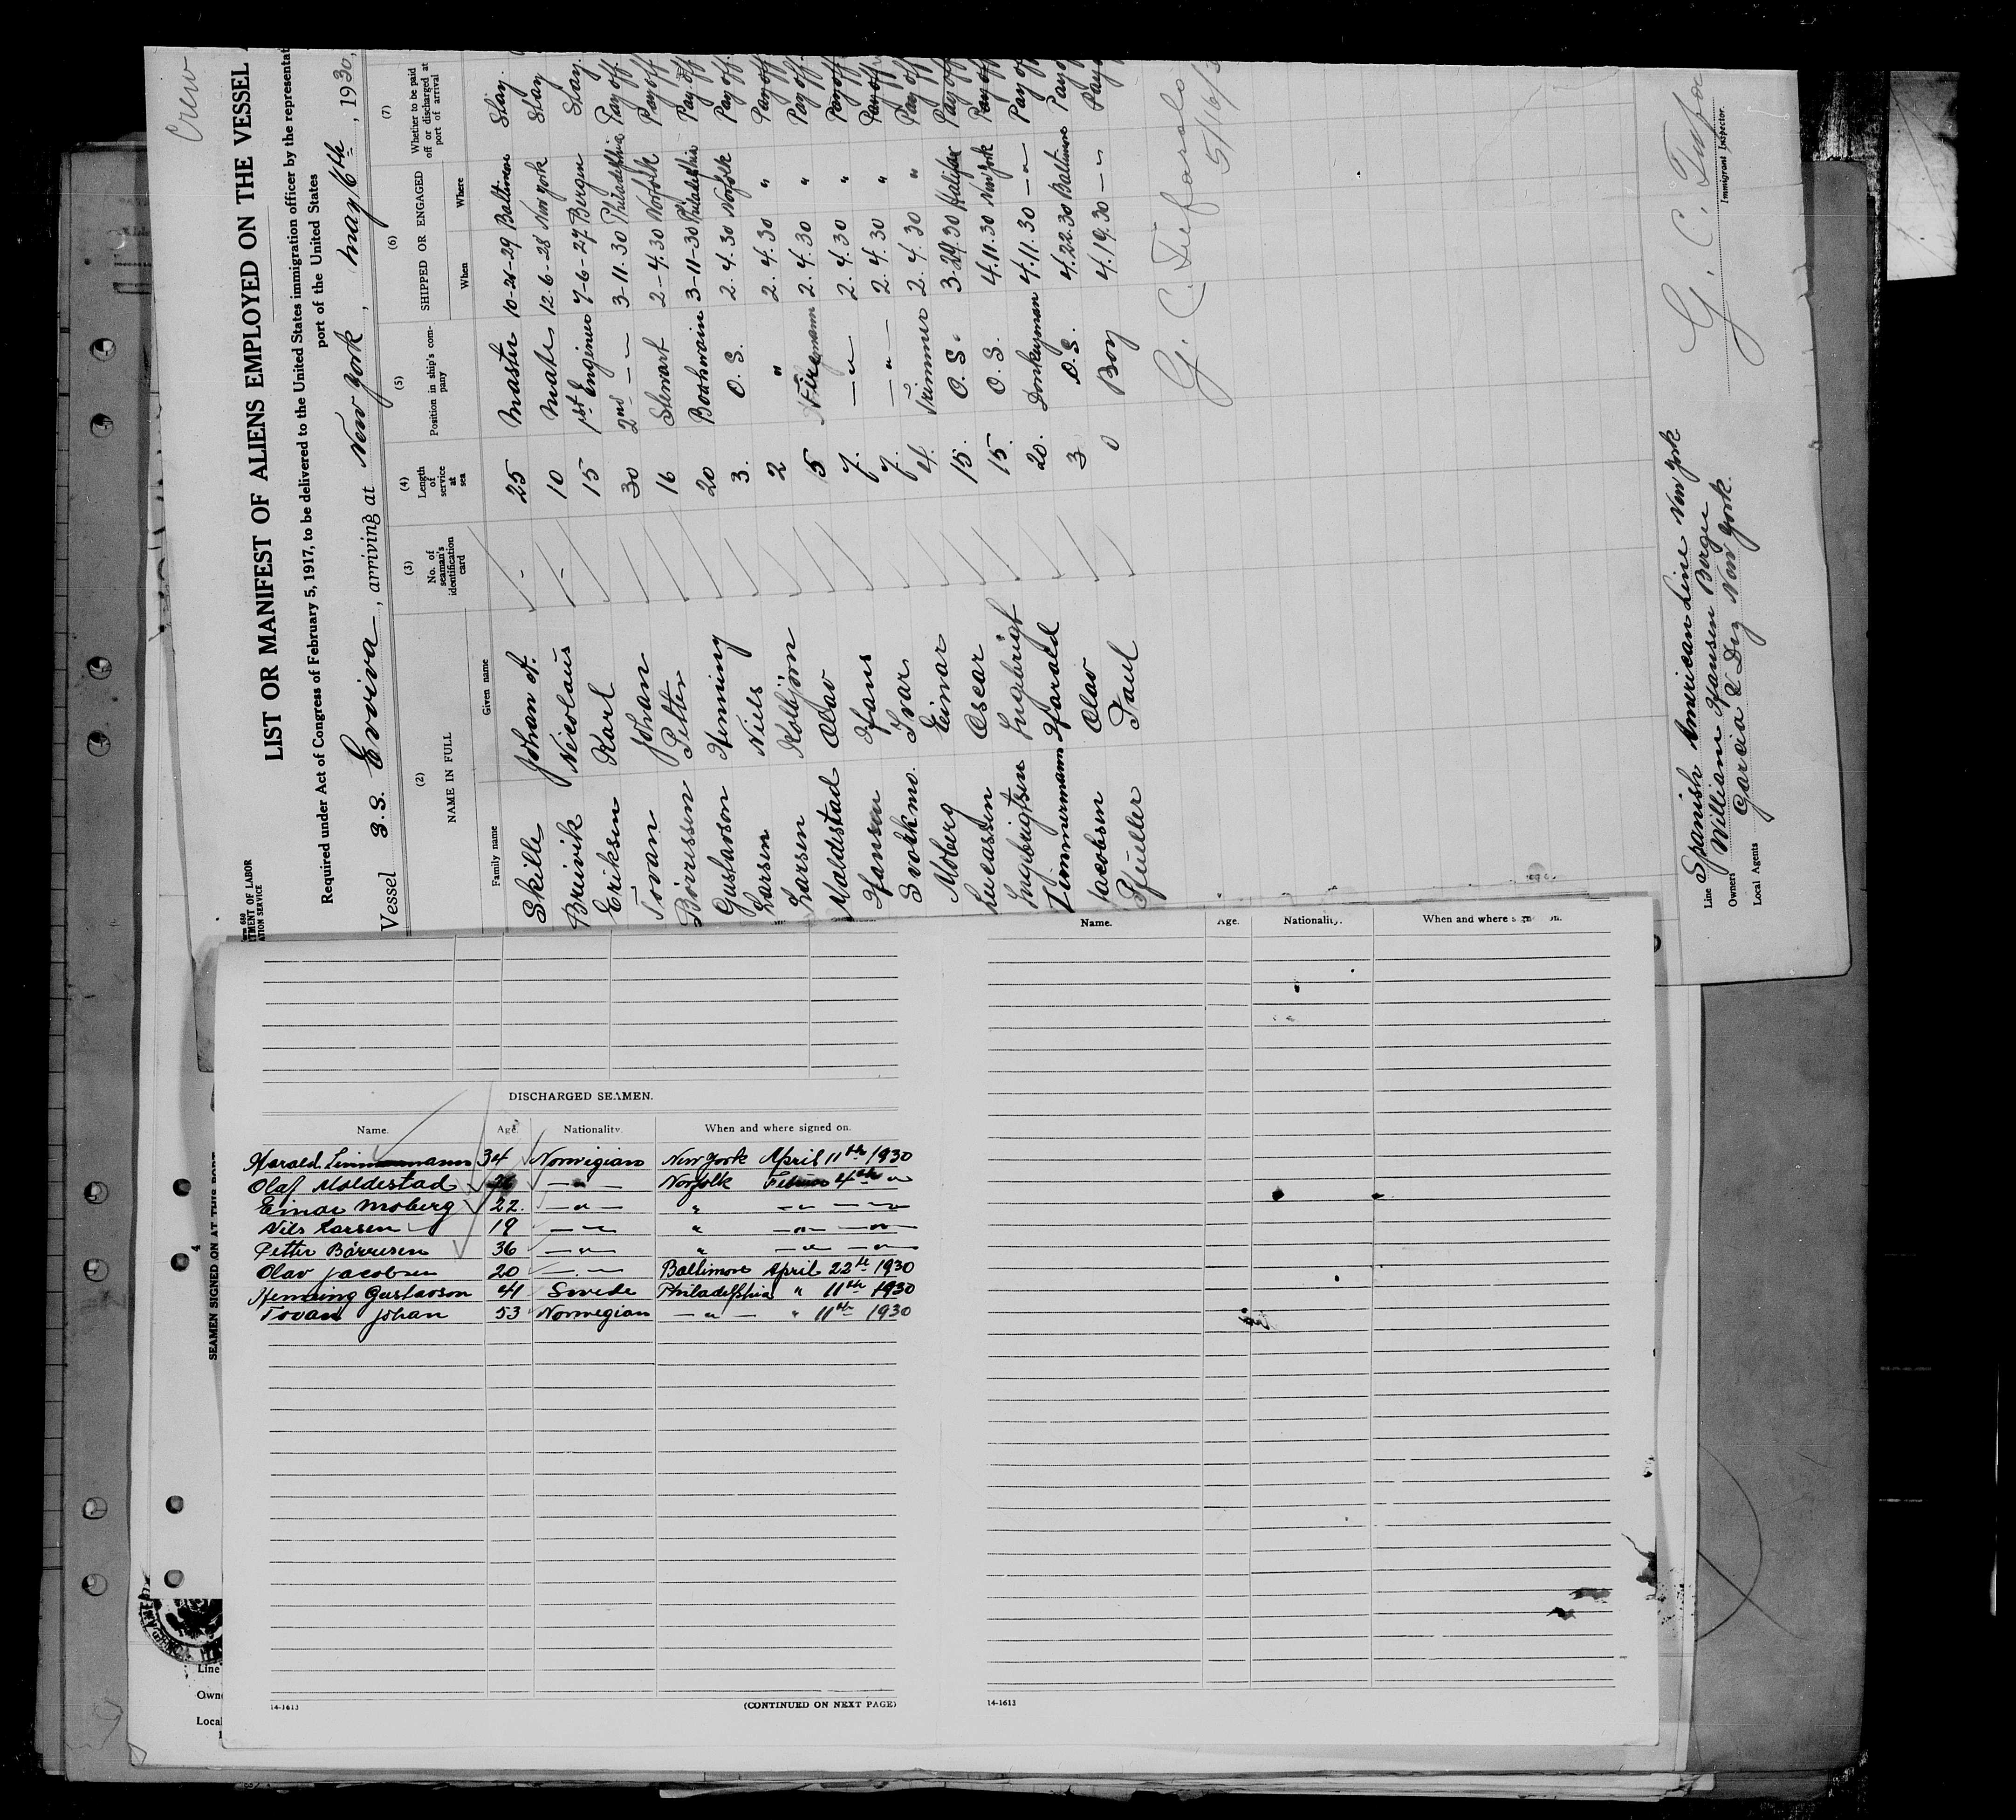 Crew
LIST OR MANIFEST OF ALIENS EMPLOYED ON THE VESSEL
Required under Act of Congress of February 5, 1917, to be delivered to the United States immigration officer by the representat
port of the United States
Vessel S.S. Eviva, arriving at New York, May 6th, 1930,
(2) (3) (4) (5) (6) (7)
NAME IN FULL No. of seaman's identification card Length of service at sea Position in ship's company SHIPPED OR ENGAGED Whether to be paid off or discharged at port of arrival
Family name Given name When Where
Skille Johan A. 25 Master 10-28-29 Baltimore Stay.
Breivik Nicolaus 10 Mate 12-6-28 New York Stay
Eriksen Karl 15 1st Engineer 7-6-27 Bergen Stay.
Tovan Johan 30 2nd — " — 3-11.30 Philadelphia Pay off.
Börressen Petter 16 Stewart 2-4.30 Norfolk Pay off
Gustavson Henning 20 Boatswain 3-11-30 Philadelphia Pay off
Larsen Niels 3. O.S. 2.4.30 Norfolk Pay off.
Larsen Kolbjörn 2 " 2.4.30 " Pay off
Maldestad Olav 5 Firemann 2.4.30 " Pay off.
Hansen Hans 7. — " — 2.4.30 " Pay off
Ivar 7. — " — 2.4.30 " Pay off
Moberg Einar 4. Trimmer 2.4.30 " Pay off
Lucassen Oscar 15. O.S. 3-29.30 Halifax Pay off
Ingebrigtsen Ingebrigt 15. O.S. 4.11.30 New York Pay off
Zimmermann Harald 20. Donkeyman 4.11.30 — " — Pay of
Jacobsen Olav 3 O.S. 4.22.30 Baltimore Pay o
Pfueller Paul 0 Boy 4.19.30 — " — Pay
5/16/3
Line Spanish American Line New York
Owners William Hansen Bergen
Local Agents Garcia & Diaz New York.
G. C.
Immigrant Inspector.
SEAMEN SIGNED ON AT THIS PORT
4
Line
Owne
Local
DISCHARGED SEAMEN.
Name. Age. Nationality. When and where signed on.
Harald Zimmermann 34 Norwigian New York April 11th 1930
Olaf Maldestad 26 — " — Norfolk 4th "
Einar Moberg 22. — " — " — " — — " —
Nils Larsen 19 — " — " — " — — " —
Petter Börresen 36 — " — " — " — — " —
Olav Jacobsen 20 — " — Baltimore April 22th 1930
Henning Gustavson 41 Swede Philadelphia " 11th 1930
Tovan Johan 53 Norwegian — " — " 11th 1930
14-1613 (CONTINUED ON NEXT PAGE)
Name. Age. Nationality. When and where signed on.
14-1613